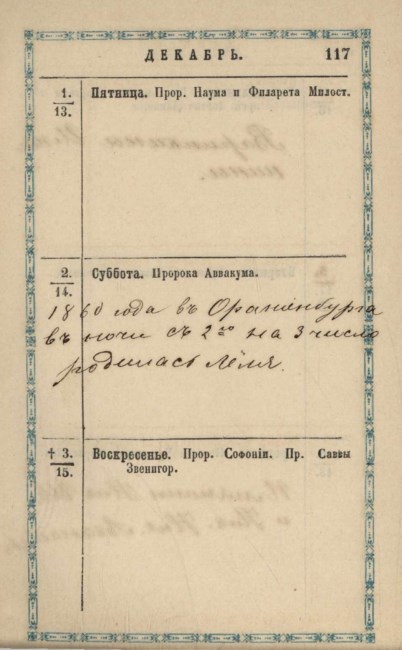 ДЕКАБРЬ. 117
1./13. Пятница. Прор. Наума и Филарета Милост.
2./14. Суббота. Пророка Аввакума.
1860 года въ Ораніенбурга
въ ночи съ 2го на 3 число
родилась Лёля.
† 3./15. Воскресенье. Прор. Софоніи. Пр. Саввы
Звенигор.